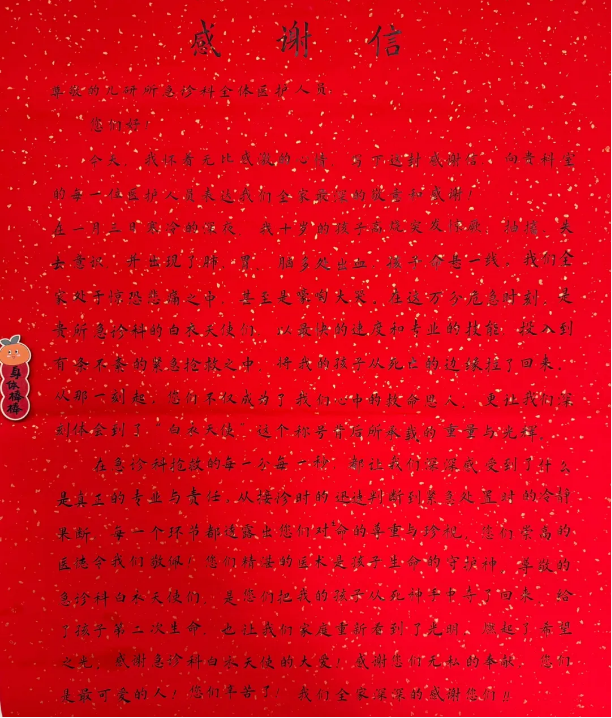 感谢信
尊敬的儿研所急诊科全体医护人员
您们好！
今天，我怀着无比感激的心情，写下这封感谢信，向贵科室
的每一位医护人员表达我们全家最深的敬意和感谢！
在一月三日寒冷的深夜，我十岁的孩子高烧突发惊厥，抽搐、失
去意识，并出现了肺、胃、脑多处出血，孩子命悬一线。我们全
家处于惊恐悲痛之中，甚至是嚎啕大哭，在这万分危急时刻，是
贵所急诊科的白衣天使们，以最快的速度和专业的技能，投入到
有条不紊的紧急抢救之中，将我的孩子从死亡的边缘拉了回来。
从那一刻起，您们不仅成为了我们心中的救命恩人，更让我们深
刻体会到了“白衣天使”这个称号背后所承载的重量与光辉。
在急诊科抢救的每一分每一秒，都让我们深深感受到了什么
是真正的专业与责任，从接诊时的迅速判断到紧急处置时的冷静
果断，每一个环节都透露出您们对生命的尊重与珍视，您们崇高的
医德令我们敬佩！您们精湛的医术是孩子生命的守护神，尊敬的
急诊科白衣天使们，是您们把我的孩子从死神手中夺了回来，给
了孩子第二次生命，也让我们家庭重新看到了光明，燃起了希望
之光，感谢急诊科白衣天使的大爱！感谢您们无私的奉献，您们
是最可爱的人！您们辛苦了！我们全家深深的感谢您们！！
身体棒棒